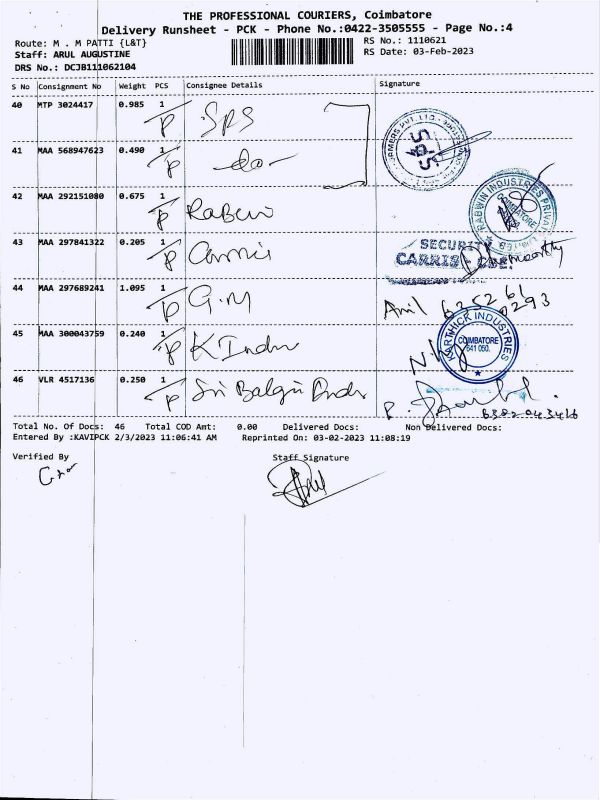 THE PROFESSIONAL COURIERS, Coimbatore
Delivery Runsheet - PCK - Phone No.:0422-3505555 - Page No.:4
Route: M . M PATTI {L&T}
RS No.: 1110621
Staff: ARUL AUGUSTINE
RS Date: 03-Feb-2023
DRS No.: DCJB111062104
S No Consignment No Weight PCS Consignee Details Signature
40 MTP 3024417 0.985 1 P SPS
SPS
41 MAA 568947623 0.490 1 P -do-
42 MAA 292151080 0.675 1 P Rabwin
RABWIN INDUSTRIES PRIVATE LIMITED
COIMBATORE
43 MAA 297841322 0.205 1 P
SECURITY
44 MAA 297689241 1.095 1 P G.M
45 MAA 300043759 0.240 1 P K Indu
KARTHICK INDUSTRIES
COIMBATORE
641 050.
46 VLR 4517136 0.250 1 P Sri Balaji
Total No. Of Docs: 46 Total COD Amt: 0.00 Delivered Docs: Non Delivered Docs:
Entered By :KAVIPCK 2/3/2023 11:06:41 AM Reprinted On: 03-02-2023 11:08:19
Verified By Staff Signature